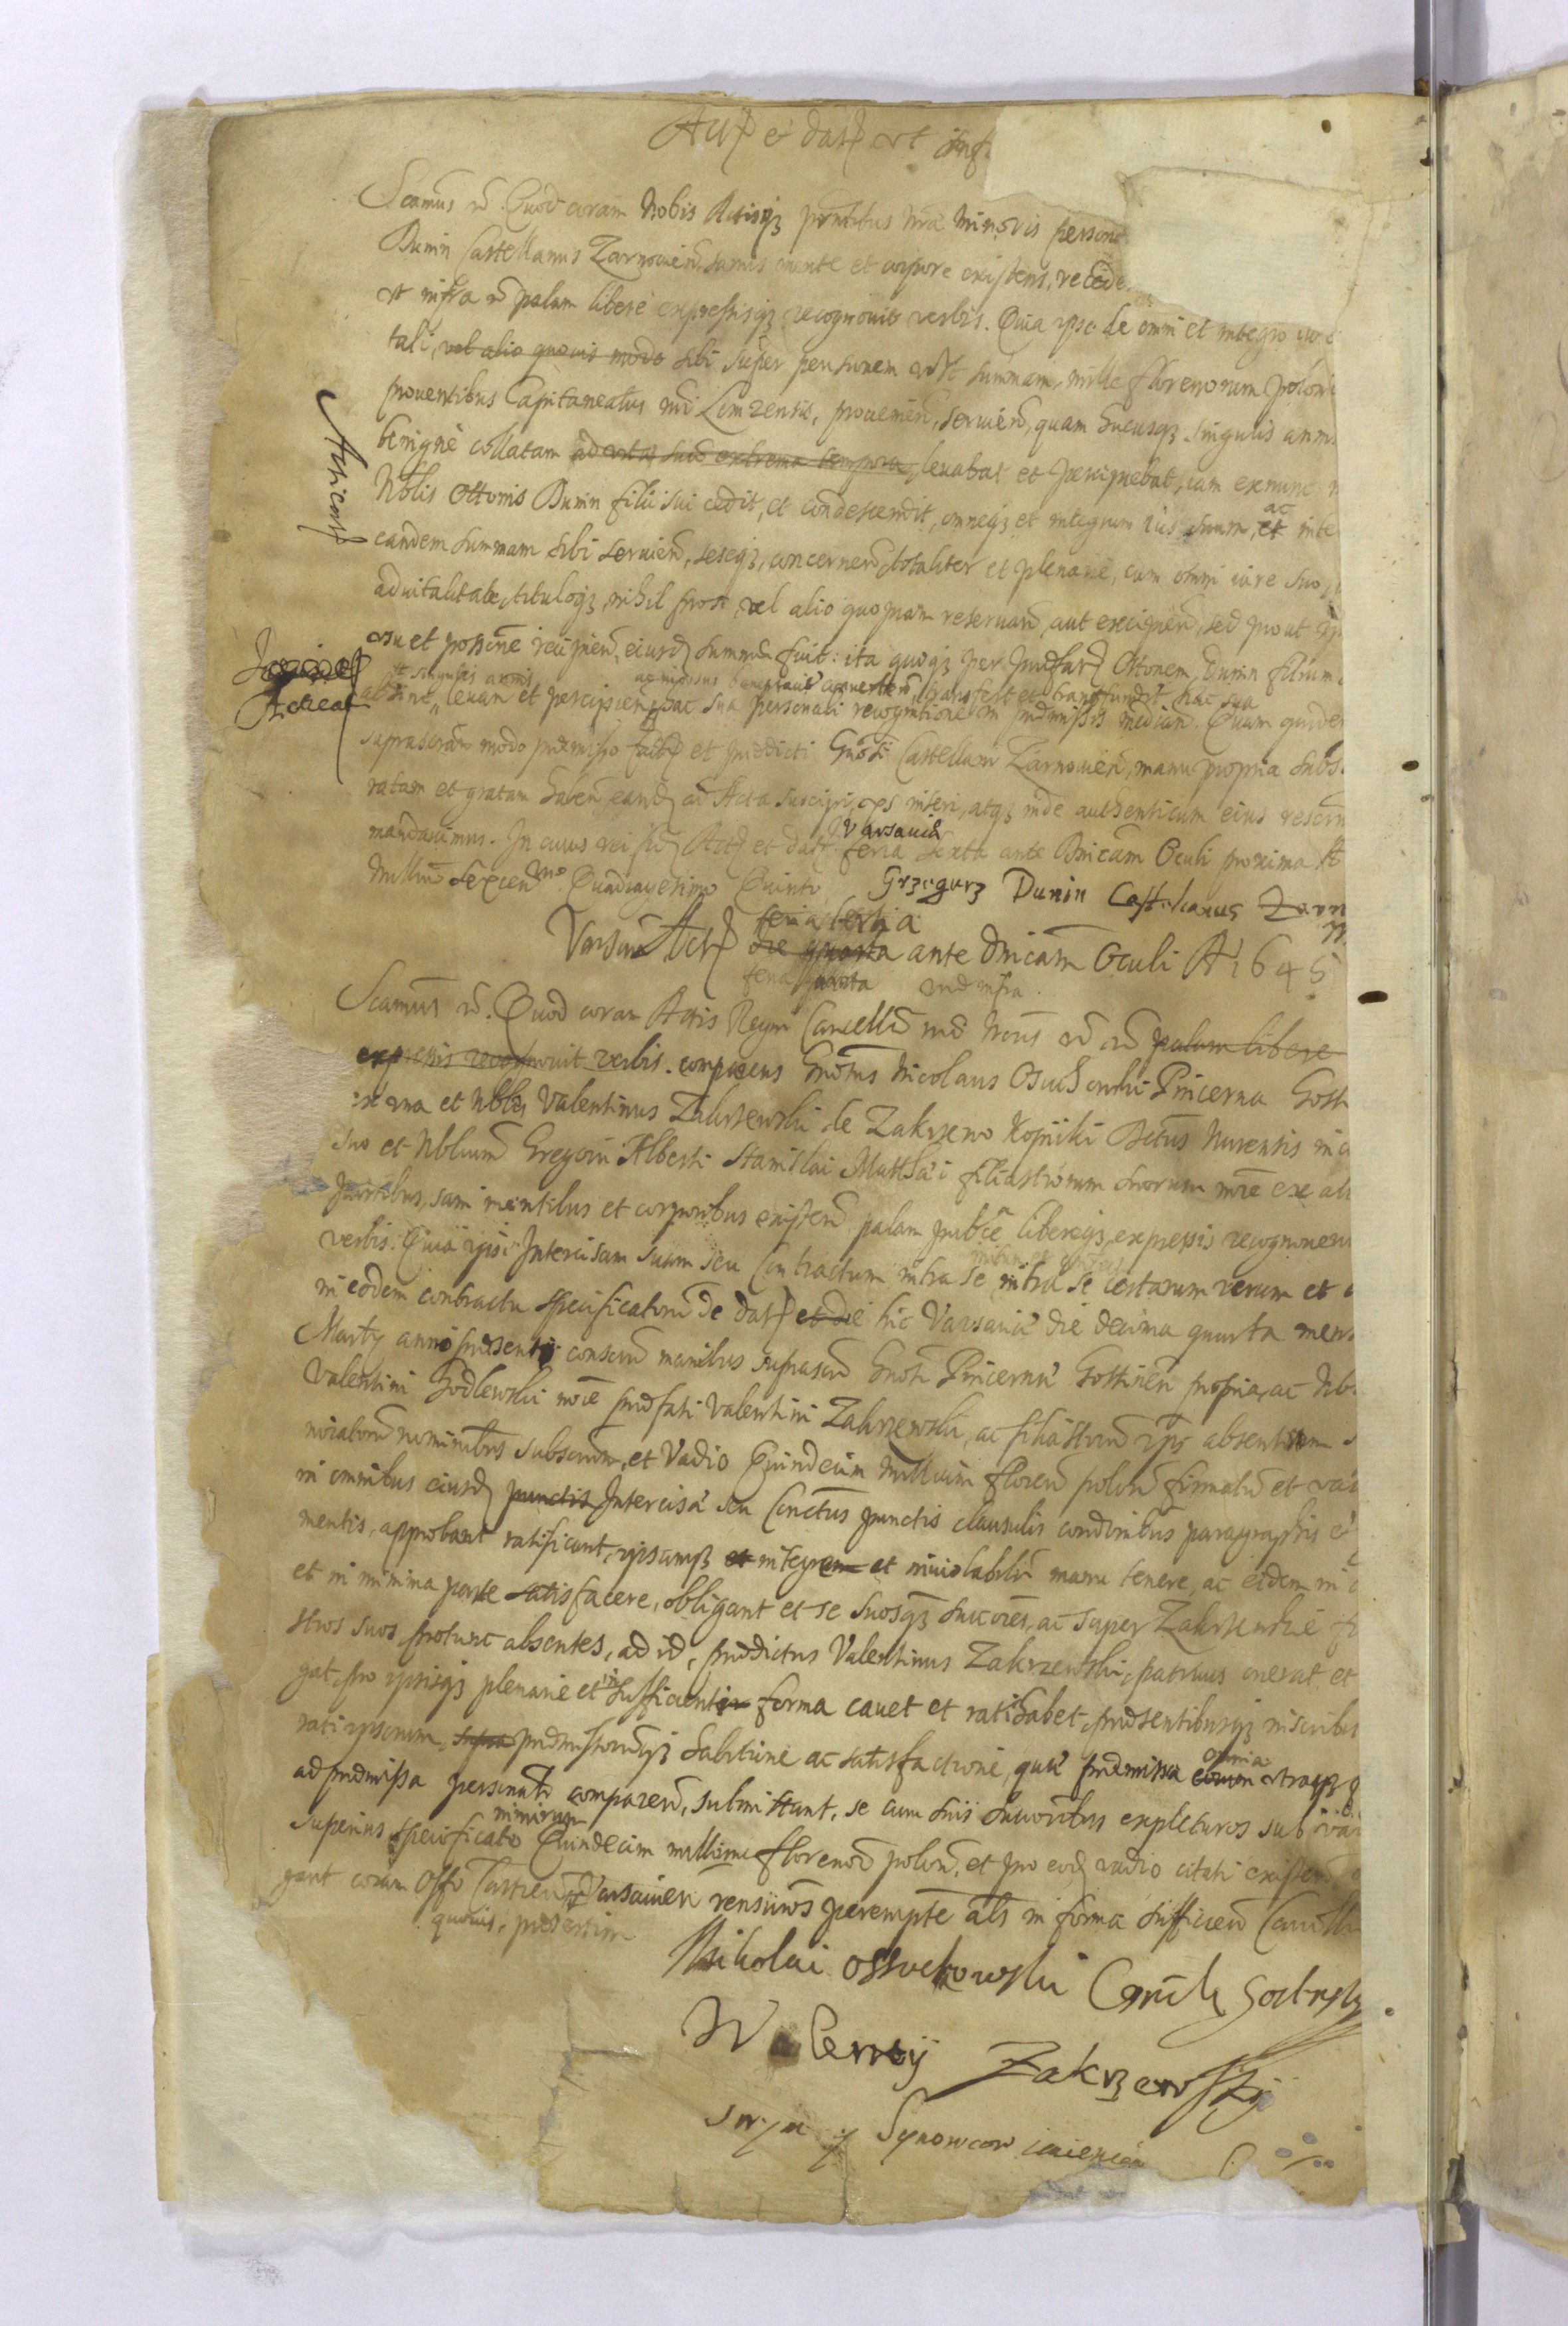 Act et dat ut inf.
Scamus etc. Quod coram Nobis Actisq pntibus nra Minoris person
Dunin Castellanus Zarnovien. sanus mente et corpore existens, recede
ut infra etc palam libere expressisq recognovit verbis. Quia ipse de omni et integro iure
tali, vel alio quovis modo sibi super pensionem vel summam, mille florenorum poloni
proventibus Capitaneatus nri Lomzensis, provenien, servien, quam hucusq singulis annis
benigne collatam ad vitae suae extrema tempora, levabat et percipiebat, iam exnunc
Nobilis Ottonis Dunin filii sui cedit, et condescendit, omneq et integrum ius suum, et ac inte
eandem summam sibi servien, seseq, concernen, totaliter et plenarie, cum omni iure suo,
advitalitate, tituloq, nihil pro se, vel alio quopiam reservan, aut excipien, sed prout ip
usu et possne recipien, eiusd summae fuit: ita quoq per praefat Ottonem Dunin filium
singulis annis
levan et percipien, hac sua personali recognitione in praemissis median. Quam quidem
transfert et transfundit hac sua
suprascram modo praemisso fact et praedicti Gnosi Castellani Zarnovien, manu propria subs
ratam et gratam haben, eand ad Acta suscipi, eis inseri, atq inde authenticum eius rescri
mandavimus. In cuius rei fid Act et dat. Varsaviae feria sexta ante Dnicam Oculi proxima A
Millmo Sexcenmo Quadragesimo Quinto Grzegorz Dunin Castelanus Zarn
Acticat
Acticat
feria tertia
Varsaviae Act die quarta ante Dnicam Oculi A 1645
feria quarta
Scamus etc. Quod coram Actis Regni Cancellae mei Nois etc etc palam libere
expressis recognovit verbis. comparens Gnosus Nicolaus Osuchowski Pincerna Gost
et una et Nobles Valentinus Zakrzewski de Zakrzewo Kopiiki Dictus Nurensis in a
suo et Nobilium Gregorii Alberti Stanislai Matthaei filiastrorum suorum noie ex al
partibus, sani mentibus et corporibus existen palam publice libereq expressis recognoverunt
verbis: Quia ipsi Intercisam suam seu Contractum intra se intra se certarum rerum et
in eodem contractu specificatarum de dat et die hic Varsaviae die decima quarta mens
Martij anni praesentis conscrum manibus suprascri Gnosi Pincernae Gostinen propria, ac Nob
Valentini Godlewski noie praefati Valentini Zakrzewski, ac filiastrorum ips absentium
noiatorum nominibus subscrum, et Vadio Quindecim Millium floren polon firmatum et va
in omnibus eiusd punctis Intercisae seu Contractus punctis clausulis condnibus paragraphis et
mentis, approbant ratificant, ipsumq et integrum et inviolabilem manu tenere, ac eidem in
et in minima parte satisfacere, obligant et se suosq succores, ac super Zakrzewskie
stros suos protunc absentes, ad id, praedictus Valentinus Zakrzewski, patruus onerat et
gat, pro ipsisq plenarie et in sufficienti forma cavet et ratihabet, praesentibusq inscribit
rati ipsorum, supra praemissorumq habitione ac satisfactione, quae praemissa eorum omnia utraq
ad praemissa personalr comparen, submittunt, se cum suis succoribus expleturos sub va
superius specificato nimirum Quindecim millium florenor polon, et pro eod vadio citati existen
gant coram Offo Castren Varsavien
quovis, praesertim
terminos perempte als in forma sufficien Cancell
Mikołai ossuchowski Czesnik Gostynsky
Walenty Zakrzewsky
swym y Synowcow imieniem